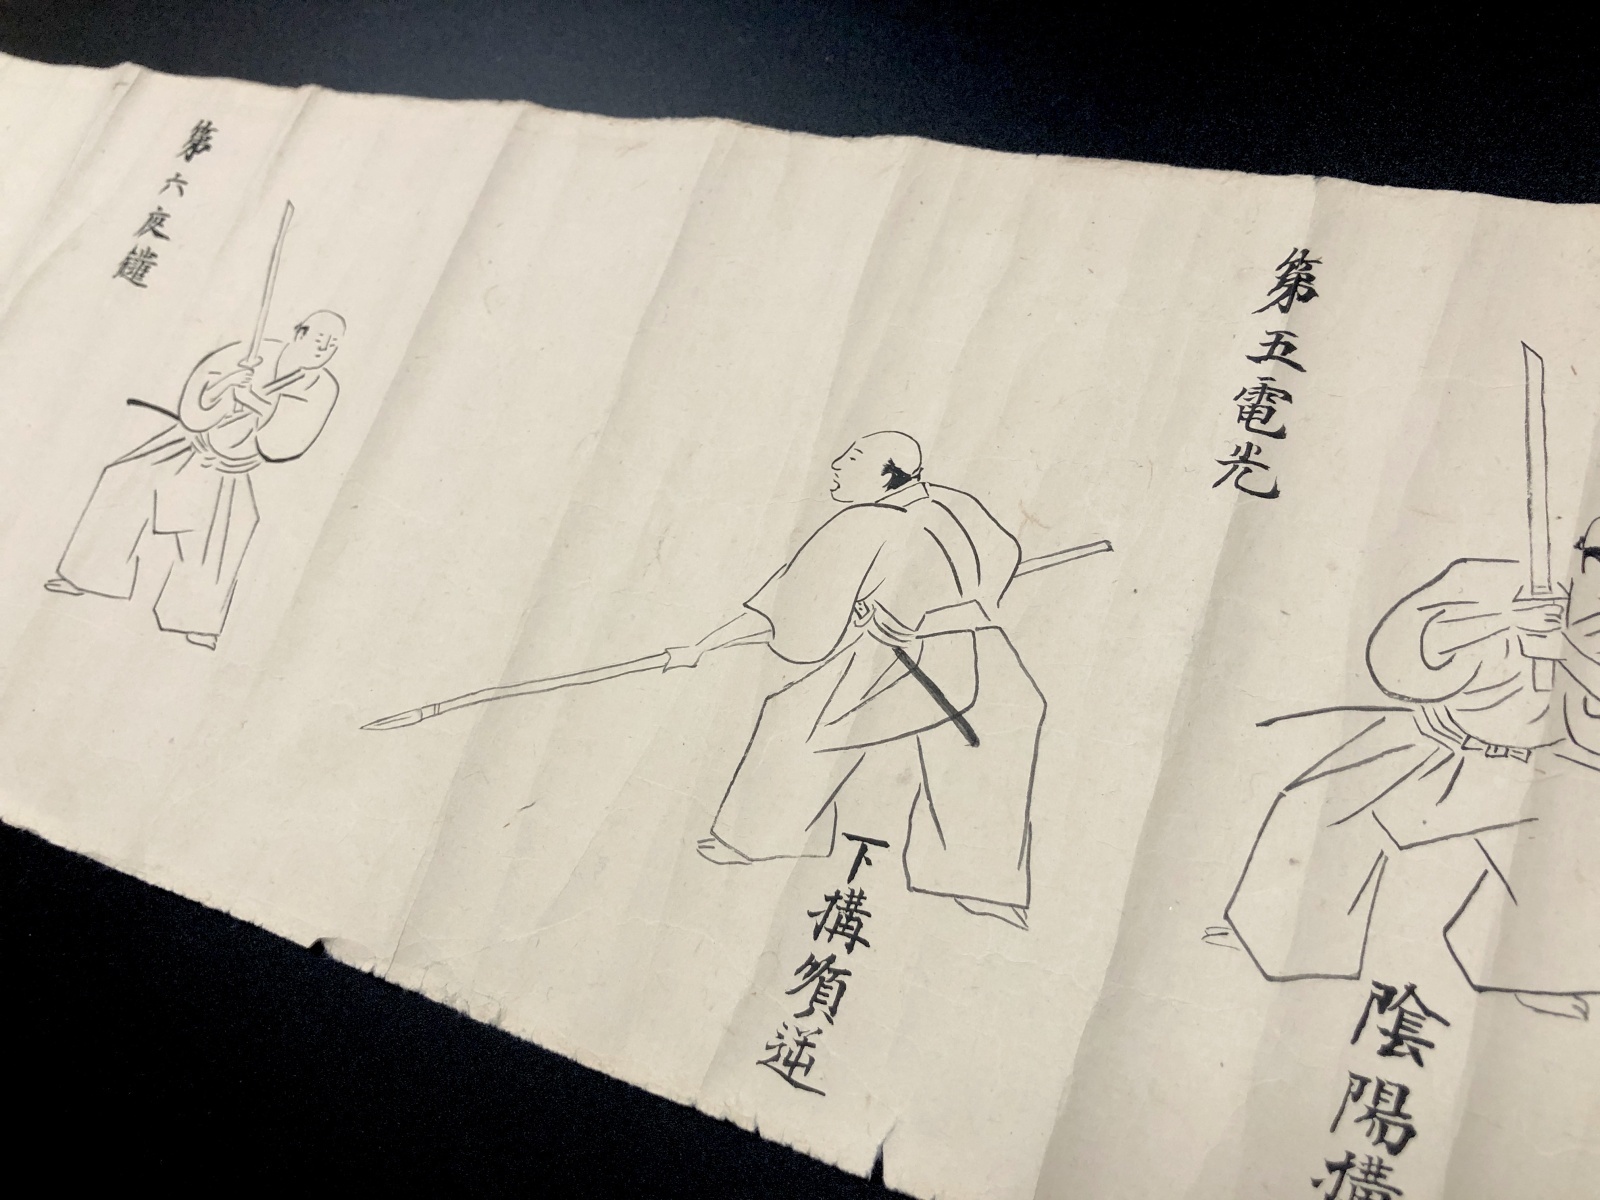 第五電光
陰陽構
下構順逆
第六夜鑓